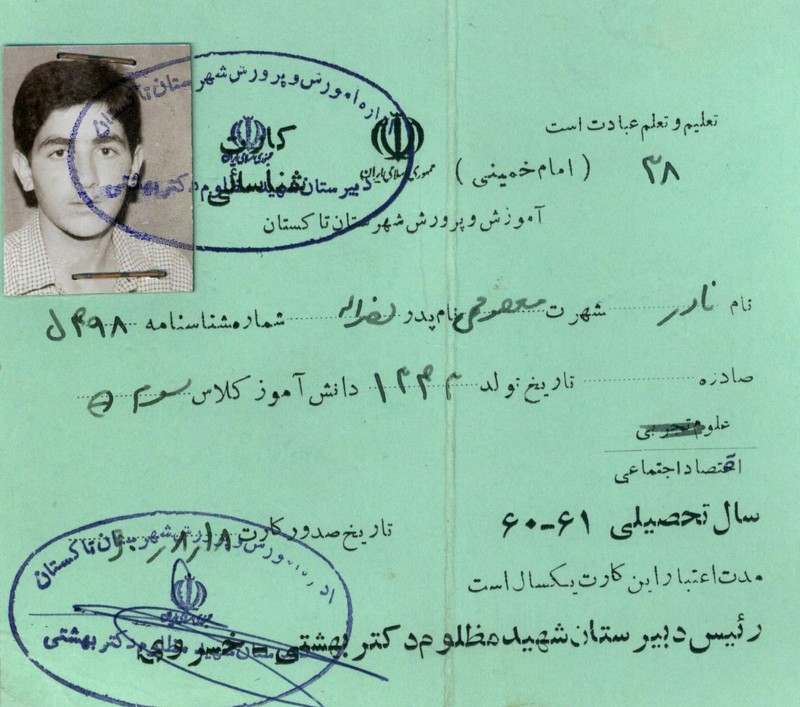 تعلیم و تعلم عبادت است
۳۸ ( امام خمینی )
جمهوری اسلامی ایران
کارت
شناسائی
اداره آموزش و پرورش شهرستان تاکستان
دبیرستان شهید مظلوم دکتر بهشتی
آموزش و پرورش شهرستان تاکستان
نام نادر شهرت معصومی نام پدر نصراله شماره شناسنامه ۴۹۸ ل
صادره تاریخ تولد ۱۳۴۳ دانش آموز کلاس سوم
علوم تجربی
اقتصاد اجتماعی
سال تحصیلی ۶۱-۶۰
تاریخ صدور کارت ۱۸ر۸ر۶۰
مدت اعتبار این کارت یکسال است
رئیس دبیرستان شهید مظلوم دکتر بهشتی - خسروانی
اداره آموزش و پرورش شهرستان تاکستان
دبیرستان شهید مظلوم دکتر بهشتی